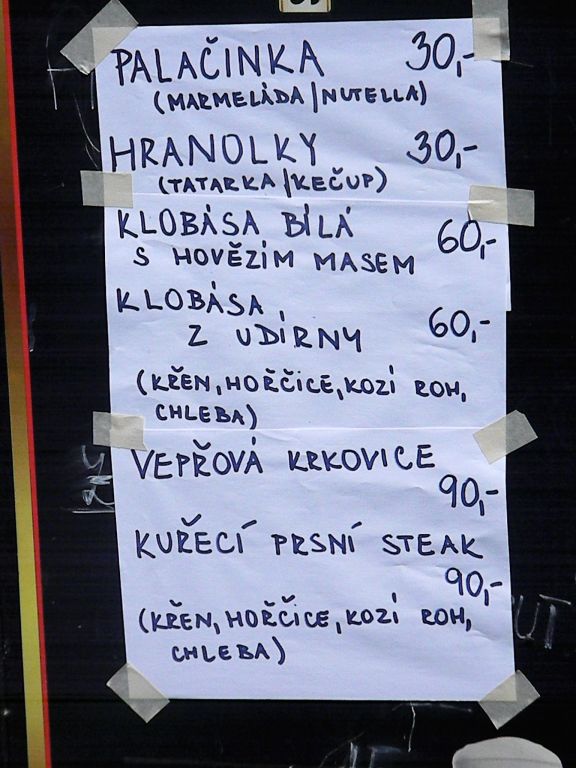 PALAČINKA 30,-
(MARMELÁDA/NUTELLA)
HRANOLKY 30,-
(TATARKA/KEČUP)
KLOBÁSA BÍLÁ
S HOVĚZÍM MASEM 60,-
KLOBÁSA
Z UDÍRNY 60,-
(KŘEN, HOŘČICE, KOZÍ ROH,
CHLEBA)
VEPŘOVÁ KRKOVICE
90,-
KUŘECÍ PRSNÍ STEAK
90,-
(KŘEN, HOŘČICE, KOZÍ ROH,
CHLEBA)